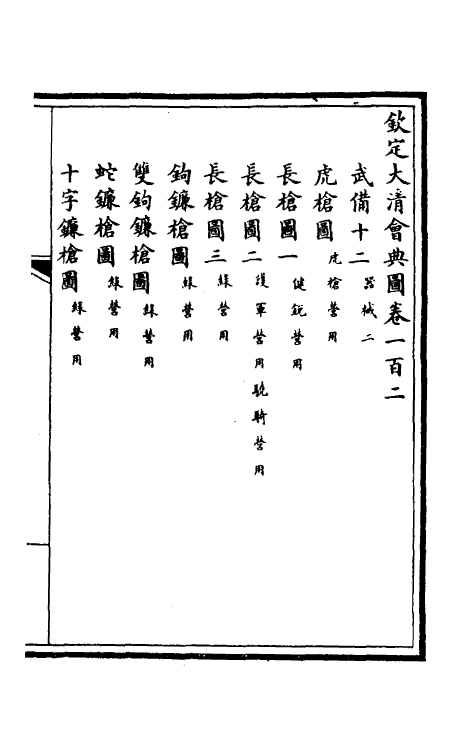 欽定大清會典圖卷一百二
武備十二 器械二
虎槍圖 虎槍營用
長槍圖一 健銳營用
長槍圖二 護軍營用驍騎營用
長槍圖三 綠營用
鉤鐮槍圖 綠營用
雙鉤鐮槍圖 綠營用
蛇鐮槍圖 綠營用
十字鐮槍圖 綠營用